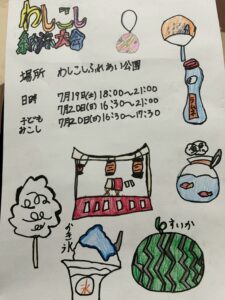 わしこし
納涼大会
場所 わしこしふれあい公園
日時 7月19日(土) 18:00～21:00
7月20日(日) 16:30～21:00
子どもみこし 7月20日(日) 16:30～17:30
かき氷
氷
すいか